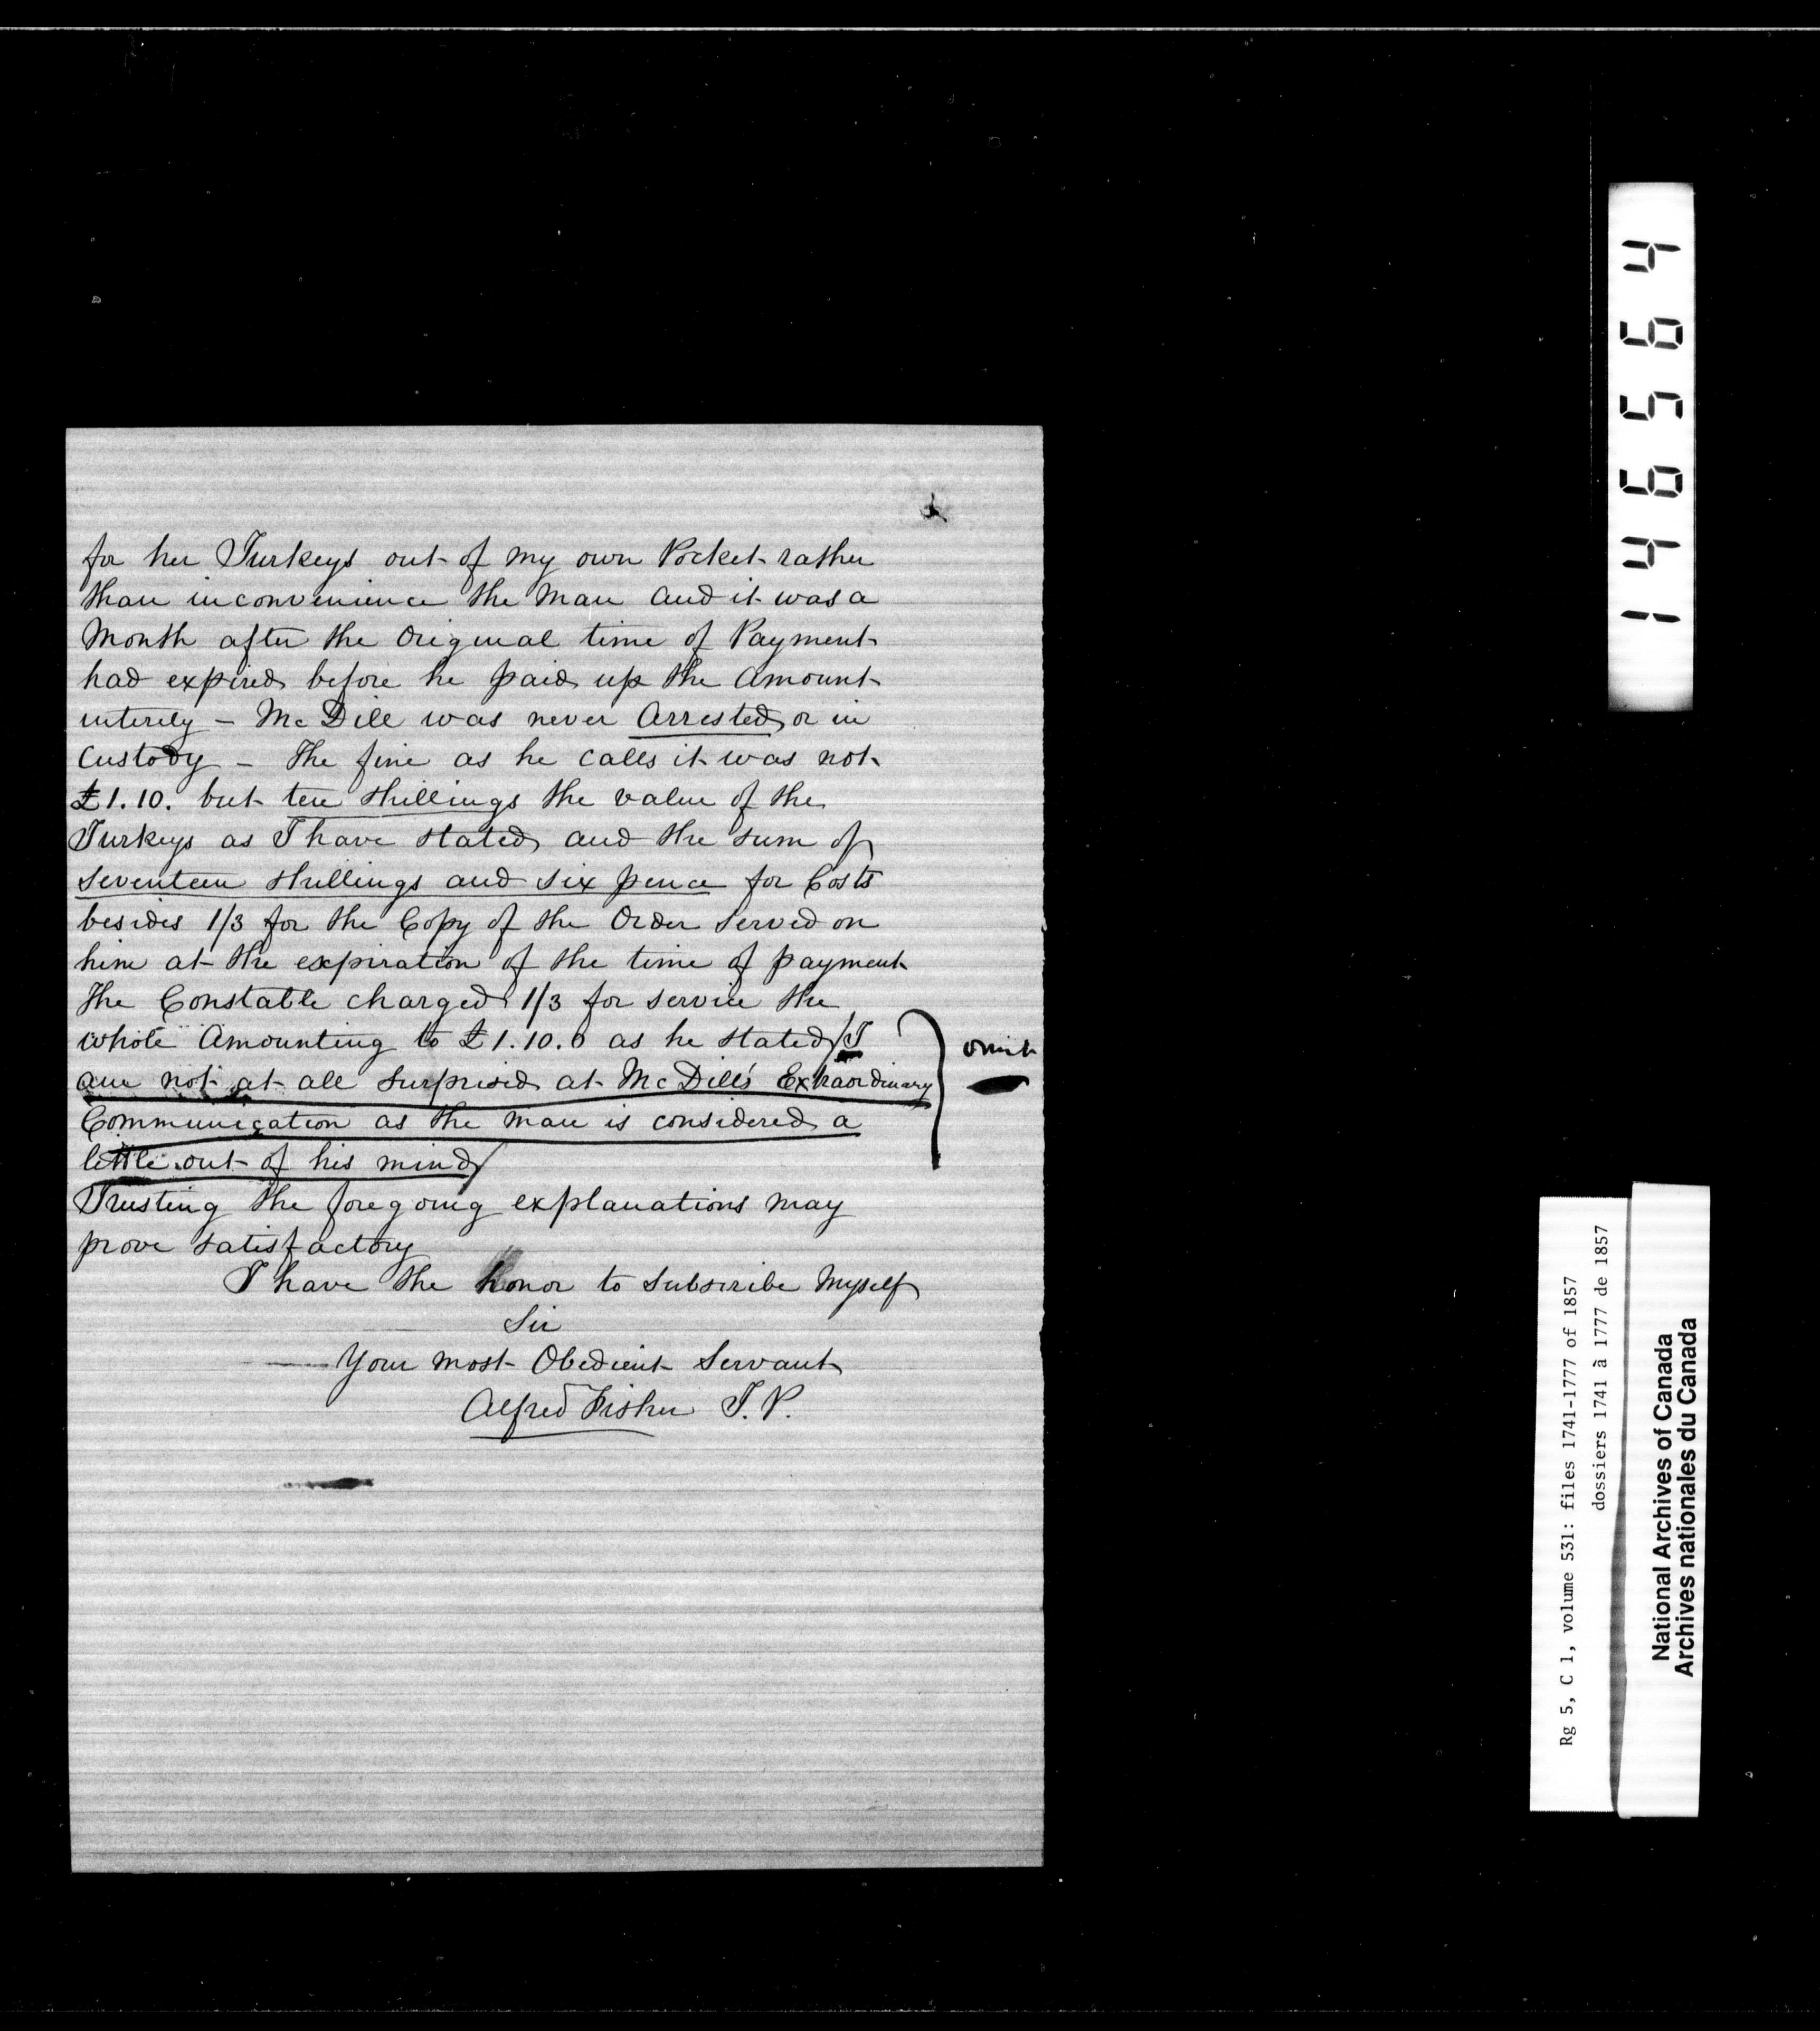 for her Turkeys out of my own Pocket rather
than inconvenience the Man and it was a
Month after the Original time of Payment
had expired before he paid up the Amount
interily – McDill was never Arrested or in
Custody – The fine as he calls it was not
£1.10. but ten shillings the value of the
Turkeys as I have stated and the sum of
seventeen shillings and six pence for Costs
besides 1/3 for the Copy of the Order served on
him at the expiration of the time of payment
The Constable charged 1/3 for service the
whole Amounting to £1.10.0 as he stated/I
am not at all surprised at McDill's Extraordinary
Communication as the man is considered a
little out of his mind/
omit
Trusting the foregoing explanations may
prove satisfactory
I have the honor to subscribe Myself
Sir
Your most Obedient Servant
Alfred Fisher J.P.
146564
Rg 5, C 1, volume 531: files 1741-1777 of 1857
dossiers 1741 à 1777 de 1857
National Archives of Canada
Archives nationales du Canada